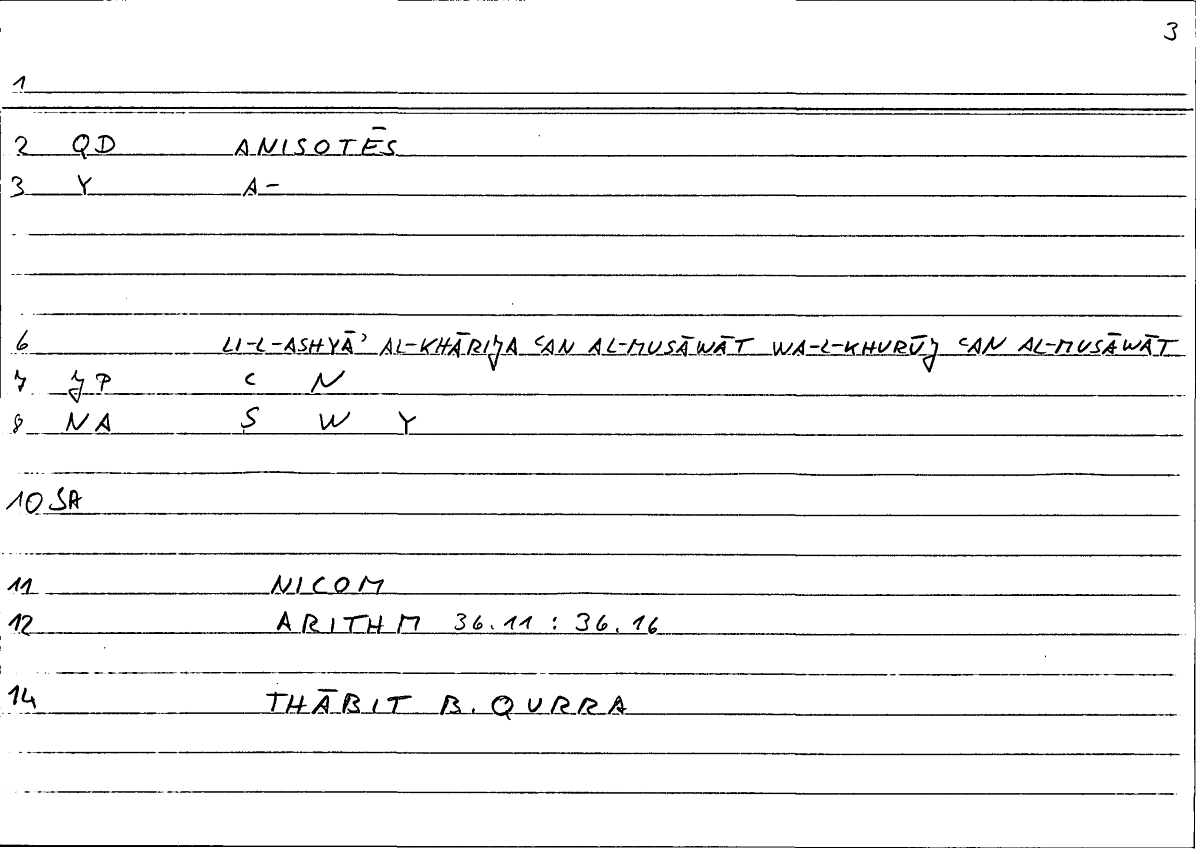 3
1
2 QD ANISOTĒS
3 Y A-
6 LI-L-ASHYĀʾ AL-KHĀRIJA ʿAN AL-MUSĀWĀT WA-L-KHURŪJ ʿAN AL-MUSĀWĀT
7 JP ʿ N
8 NA Ṣ W Y
10 SA
11 NICOM
12 ARITHM 36.11 : 36.16
14 THĀBIT B. QURRA